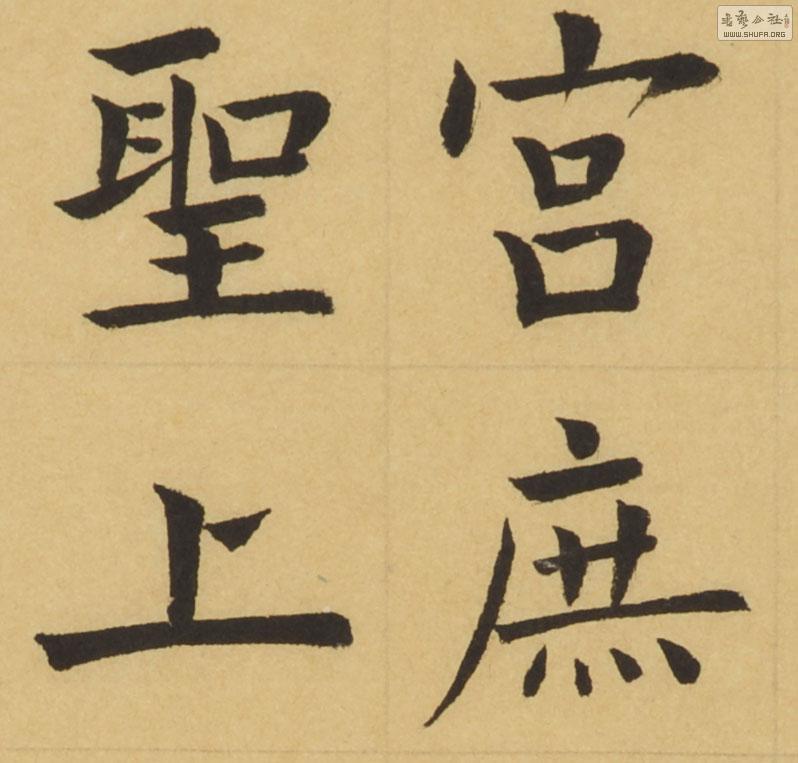 宮庶
聖上
書藝公社
WWW.SHUFA.ORG